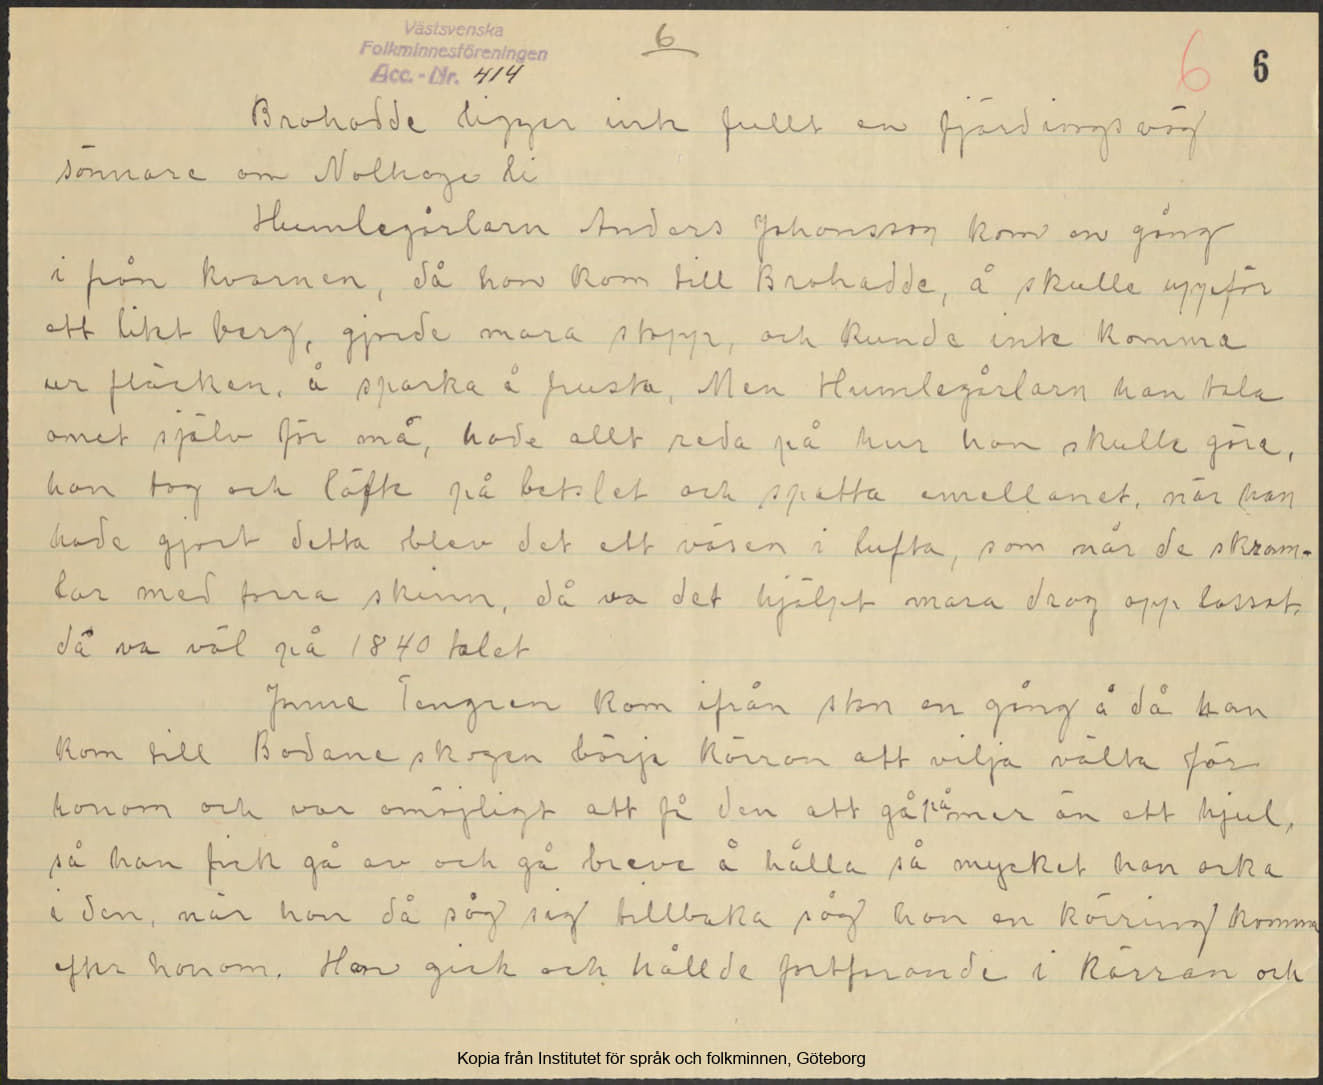 Västsvenska
Folkminnesföreningen
Acc.-Nr. 414
6
6
6
Brohadde ligger inte fullt en fjärdingsväg
sönnare om Nolhage li
Humlegårlarn Anders Johansson kom en gång
i från kvarnen, då han kom till Brohadde, å skulle uppför
ett litet berg, gjorde mara stopp, och kunde inte komma
ur fläcken, å sparka å frusta, Men Humlegårlarn han tala
omet själv för mä, hade allt reda på hur han skulle göra,
han tog och läfte på betslet och spatta emellanet, när han
hade gjort detta blev det ett väsen i lufta, som när de skram-
lar med torra skinn, då va det hjälpt mara drog opp lasset.
dä va väl på 1840 talet
Jonne Tengren kom ifrån stan en gång å då han
kom till Bodane skogen börja kärran att vilja välta för
honom och var omöjligt att få den att gå på mer än ett hjul,
så han fick gå av och gå breve å hålla så mycket han orka
i den, när han då såg sig tillbaka såg han en käring komma
efter honom. Han gick och hållde fortfarande i kärran och
Kopia från Institutet för språk och folkminnen, Göteborg